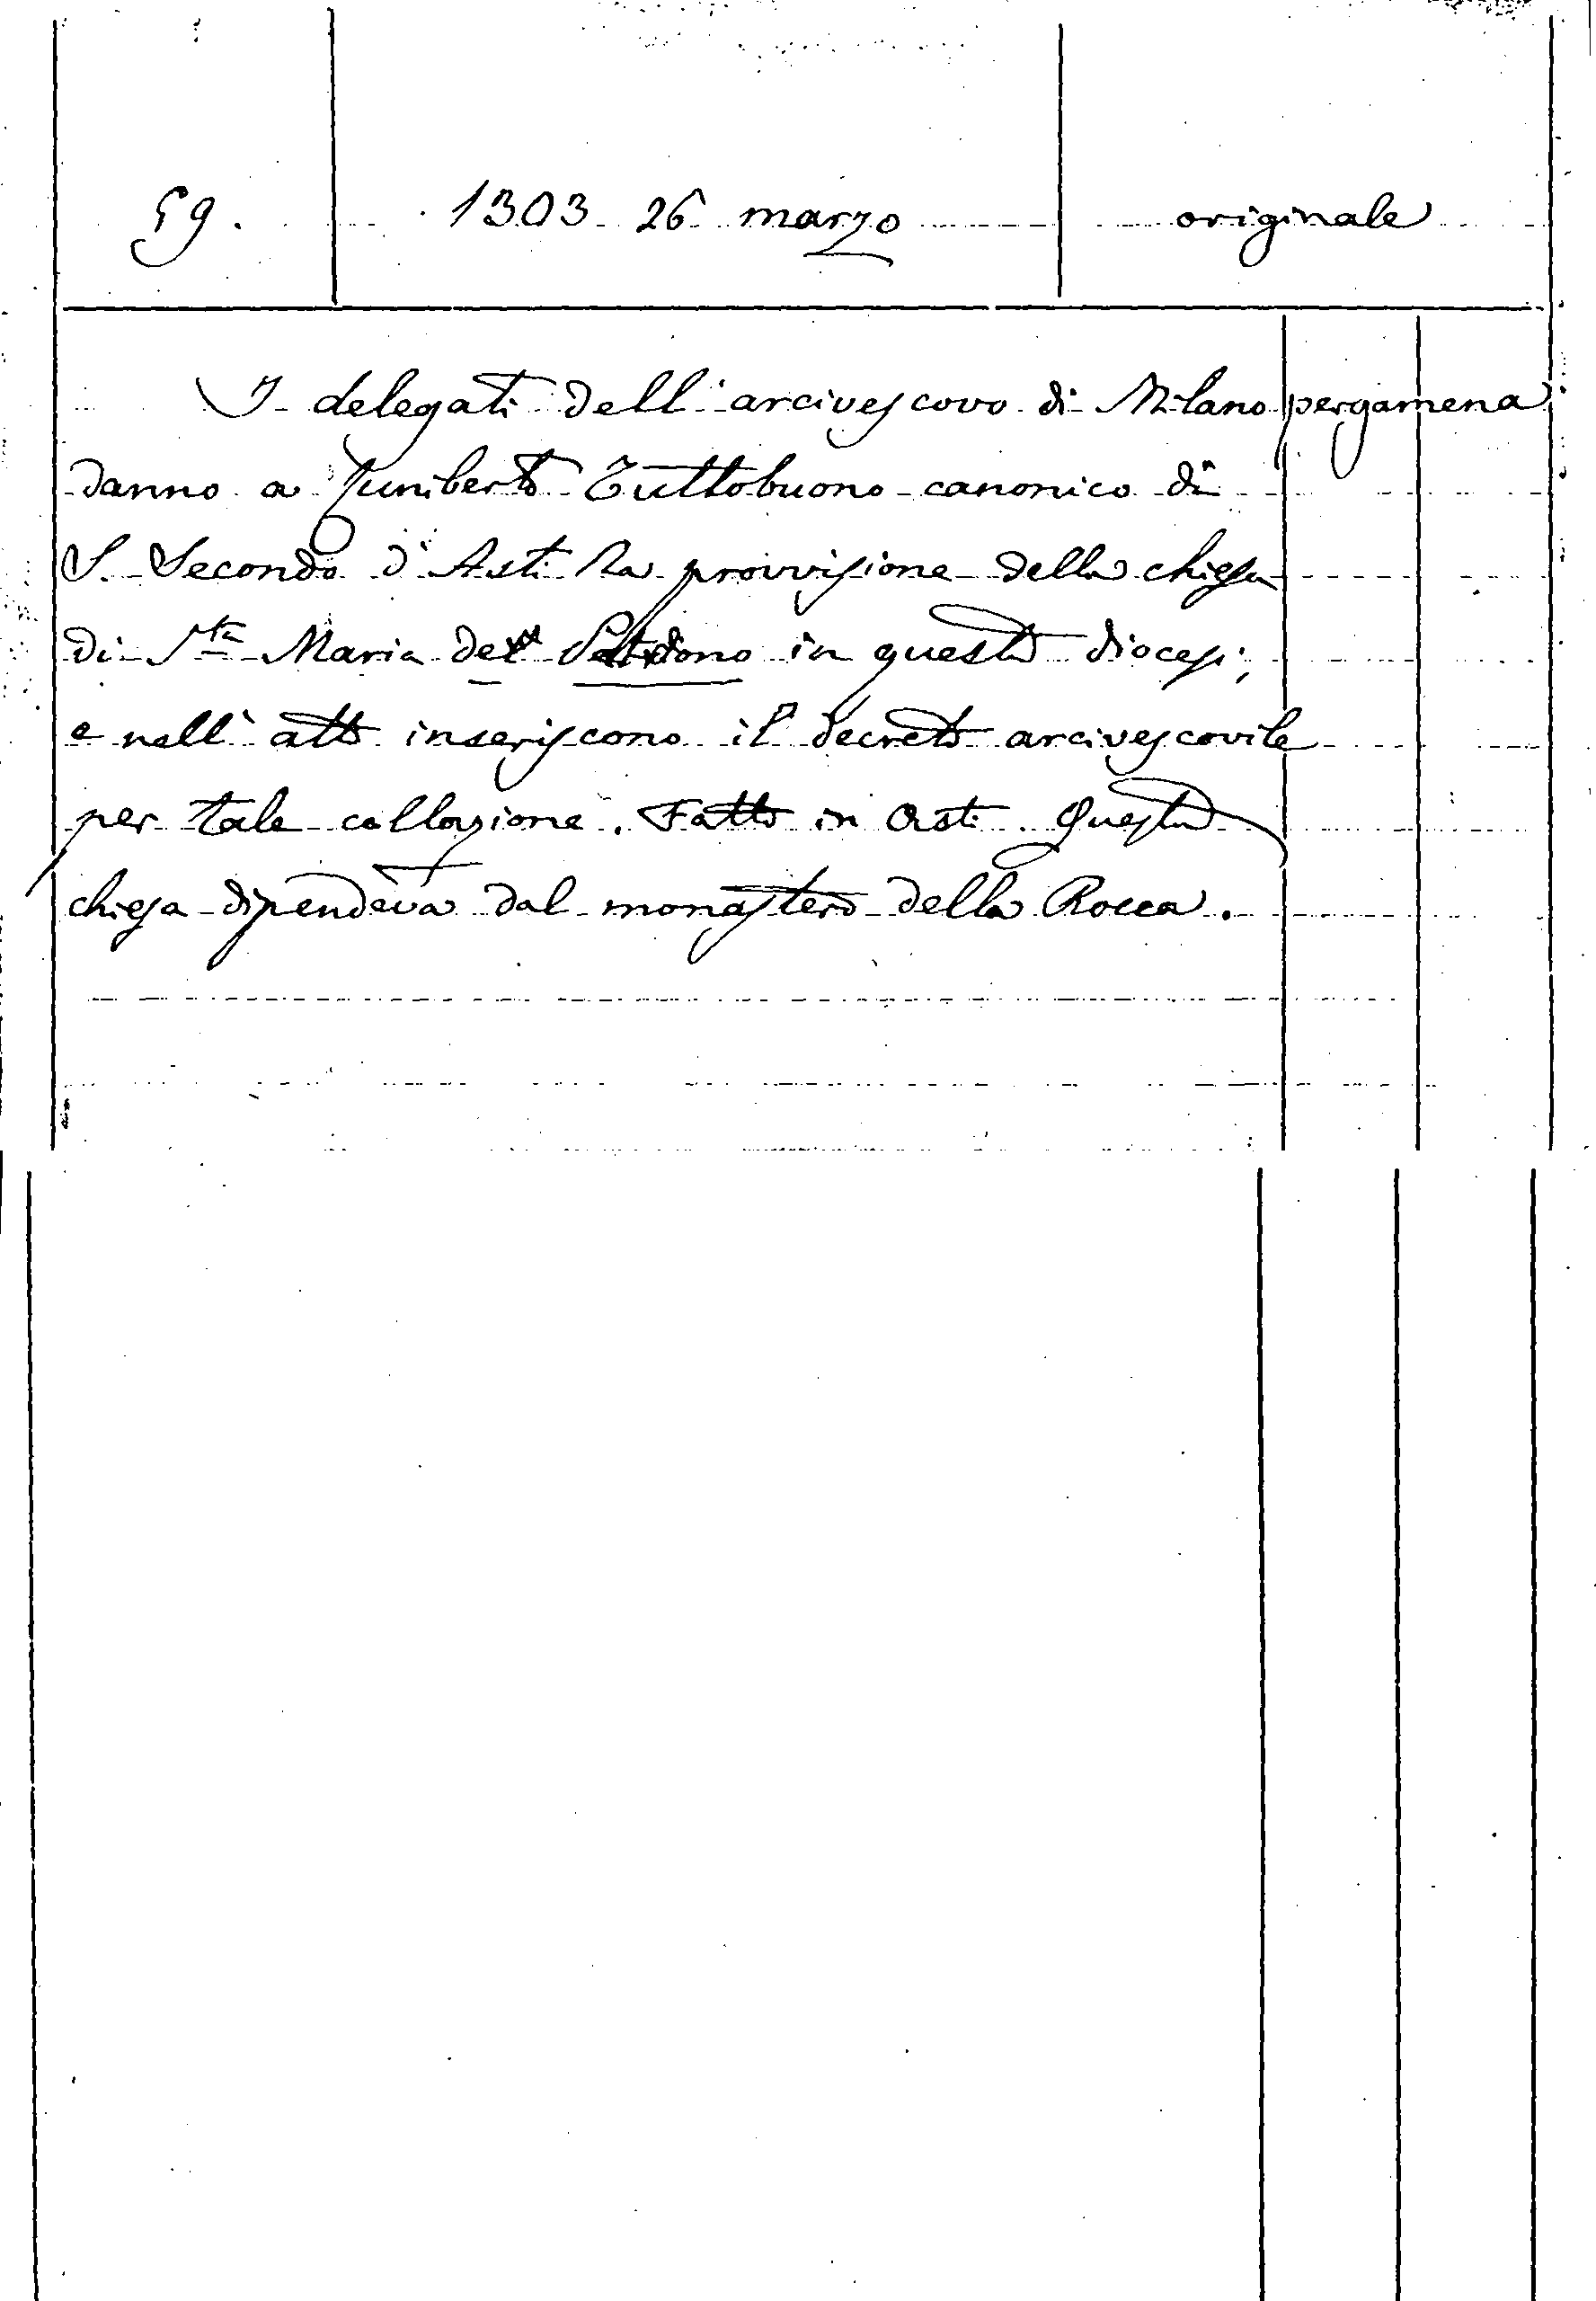 59. 1303 26 marzo originale
I delegati dell'arcivescovo di Milano pergamena
danno a Juniberto Tuttobuono canonico di
S. Secondo d'Asti la provvisione della chiesa
di Sta Maria del in questa diocesi;
e nell'atto inseriscono il decreto arcivescovile
per tale collazione. Fatto in Asti. Questa
chiesa dipendeva dal monastero della Rocca.